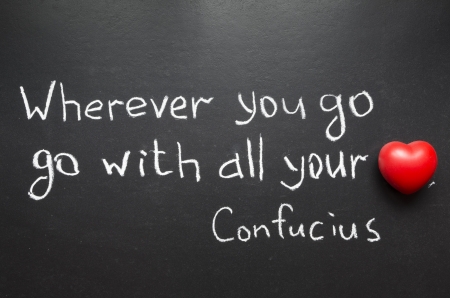 Wherever you go
go with all your
Confucius